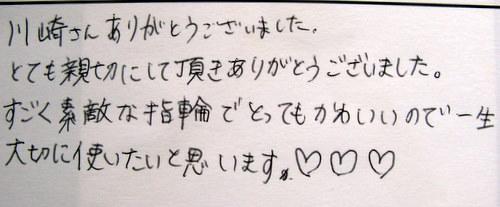 川崎さんありがとうございました.
とても親切にして頂きありがとうございました。
すごく素敵な指輪でとってもかわいいので一生
大切に使いたいと思います。♡♡♡